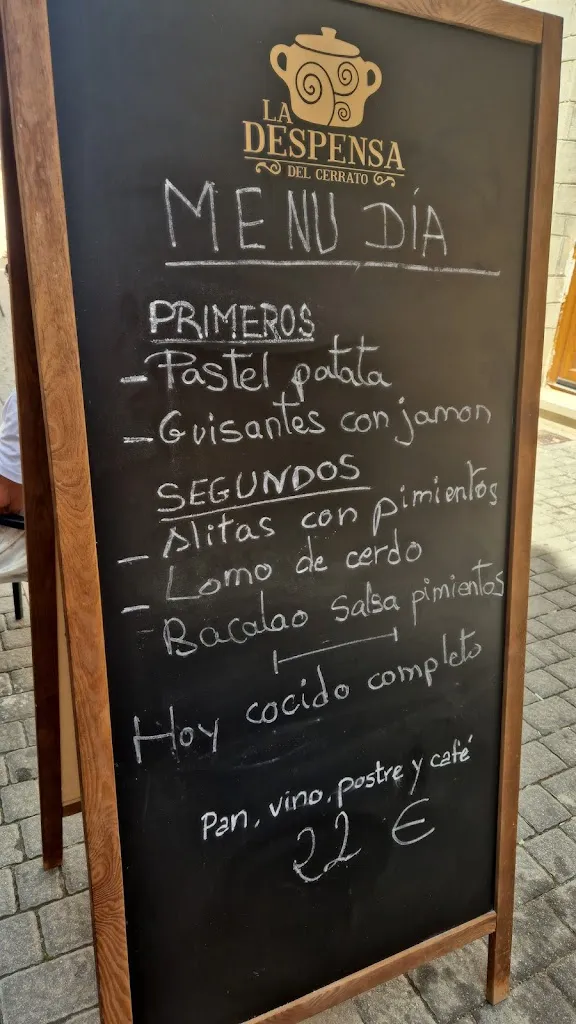 LA
DESPENSA
DEL CERRATO
MENU DÍA
PRIMEROS
- Pastel patata
- Guisantes con jamon
SEGUNDOS
- Alitas con pimientos
- Lomo de cerdo
- Bacalao salsa pimientos
Hoy cocido completo
Pan, vino, postre y café
22 €